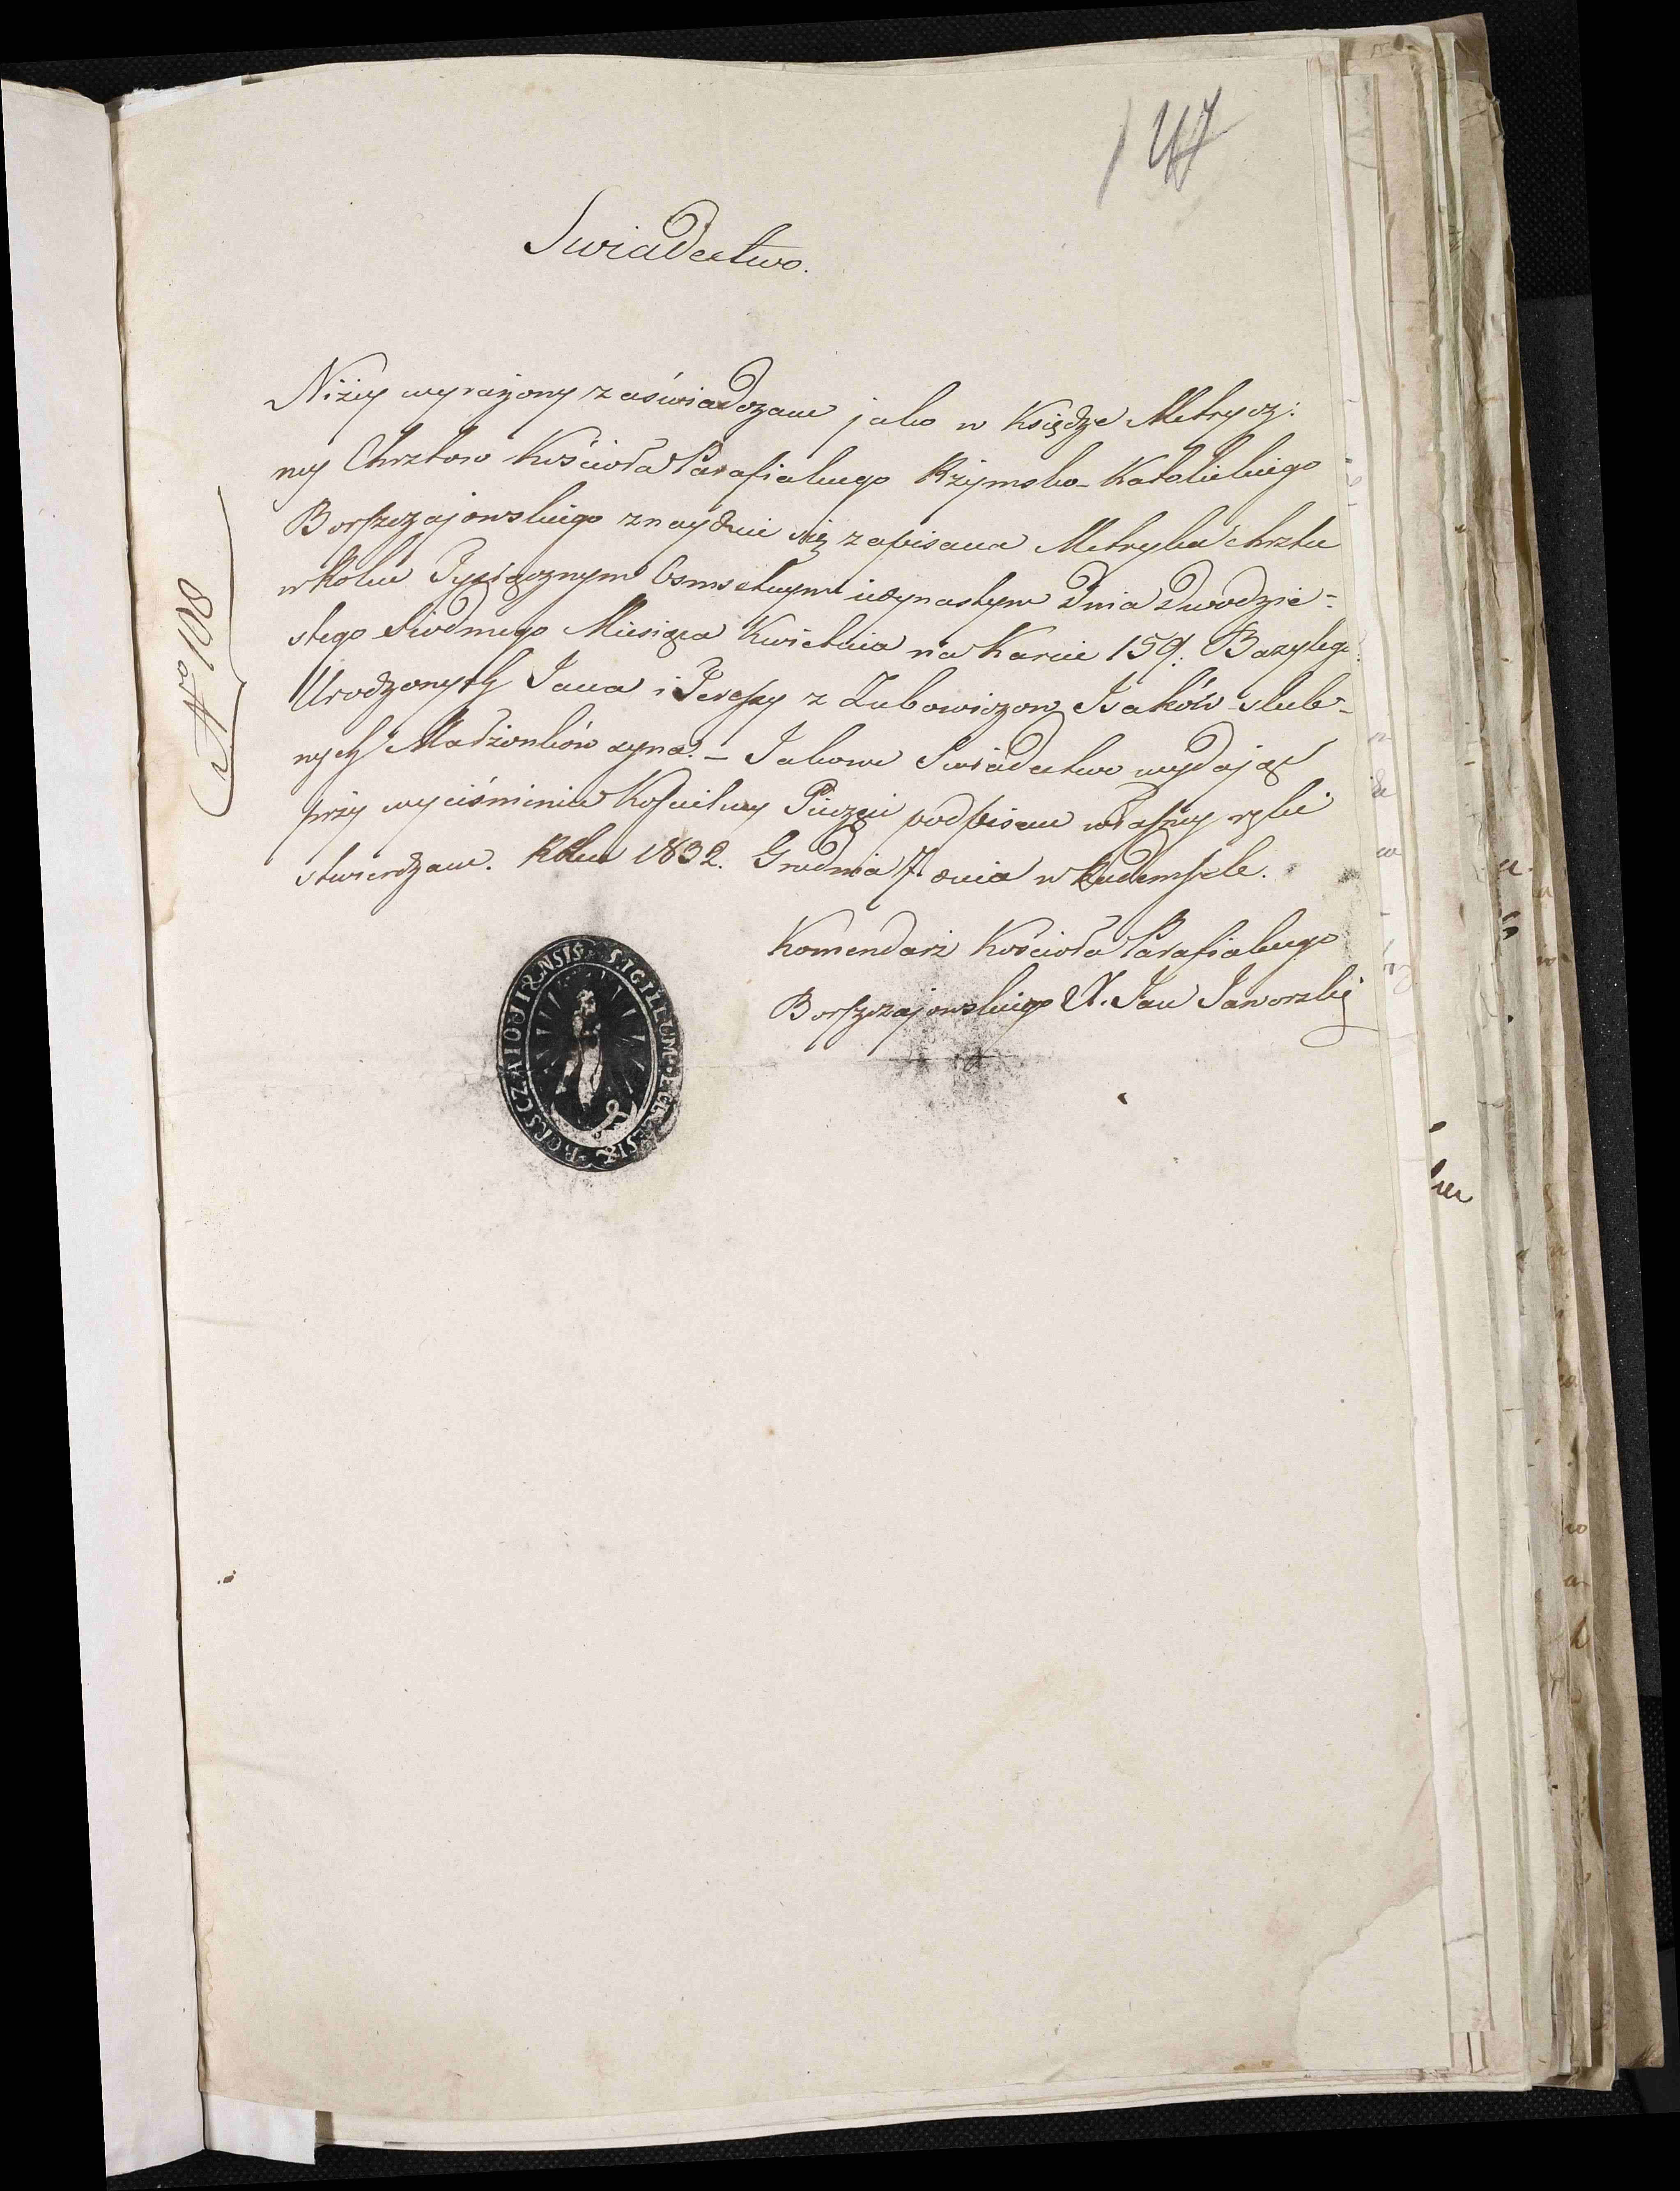 147
Swiadectwo.
Niżey wyrażony zaświadczam jako w Księdze Metrycz:
ney Chrztow Kościoła Parafialnego Rzymsko-Katolickiego
Borszczajowskiego znayduie się zapisana Metryka chrztu
w Roku Tysiącznym Osmsetnym iedynastym Dnia Dwodzie=
stego siodmego Miesiąca Kwietnia na Karcie 159. Bazylego
Urodzonych Jana i Tereszy z Zubowiczow Isaków slub-
nych Małżonków syna. – Jakowe Swiadectwo wydając
przy wyciśnieniu Koscielney Pieczęci podpisem własney ręki
stwierdzam. Roku 1832. Grudnia 7. dnia w
Komendarz Kościoła Parafialnego
Borszczajowskiego X. Jan Jaworski
No 108
SIGILLUM ECCLESIÆ BORSCZAIOVIENSIS